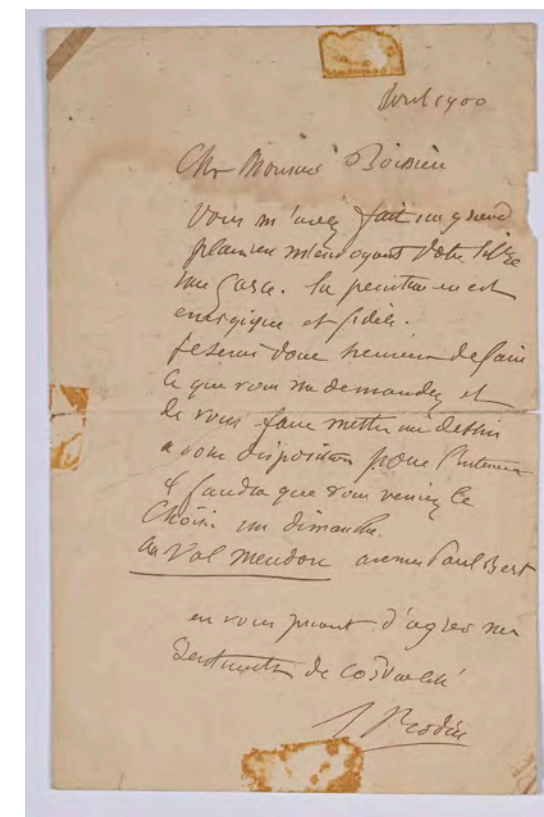 Avril 1900
Cher Monsieur Boissieu
Vous m'avez fait un grand
plaisir en m'envoyant votre livre
une Garce. la peinture en est
energique et fidèle.
je serai donc heureux de faire
ce que vous me demandez et
de vous faire mettre un dessin
a votre disposition pour
il faudra que vous veniez le
Choisir un dimanche.
au Val Meudon avenue Paul Bert
en vous priant d'agreer mes
Sentiments de cordialité
A Rodin